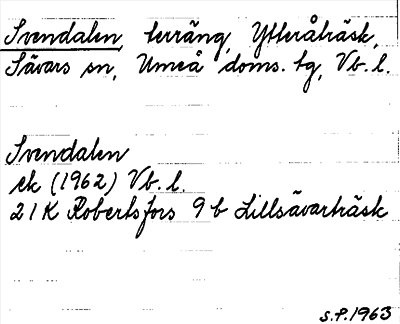 Svendalen, terräng, Ytteråträsk,
Sävars sn, Umeå doms. tg, Vb. l.
Svendalen
ek (1962) Vb. l.
21K Robertsfors 9 b Lillsävarträsk
S.P. 1963